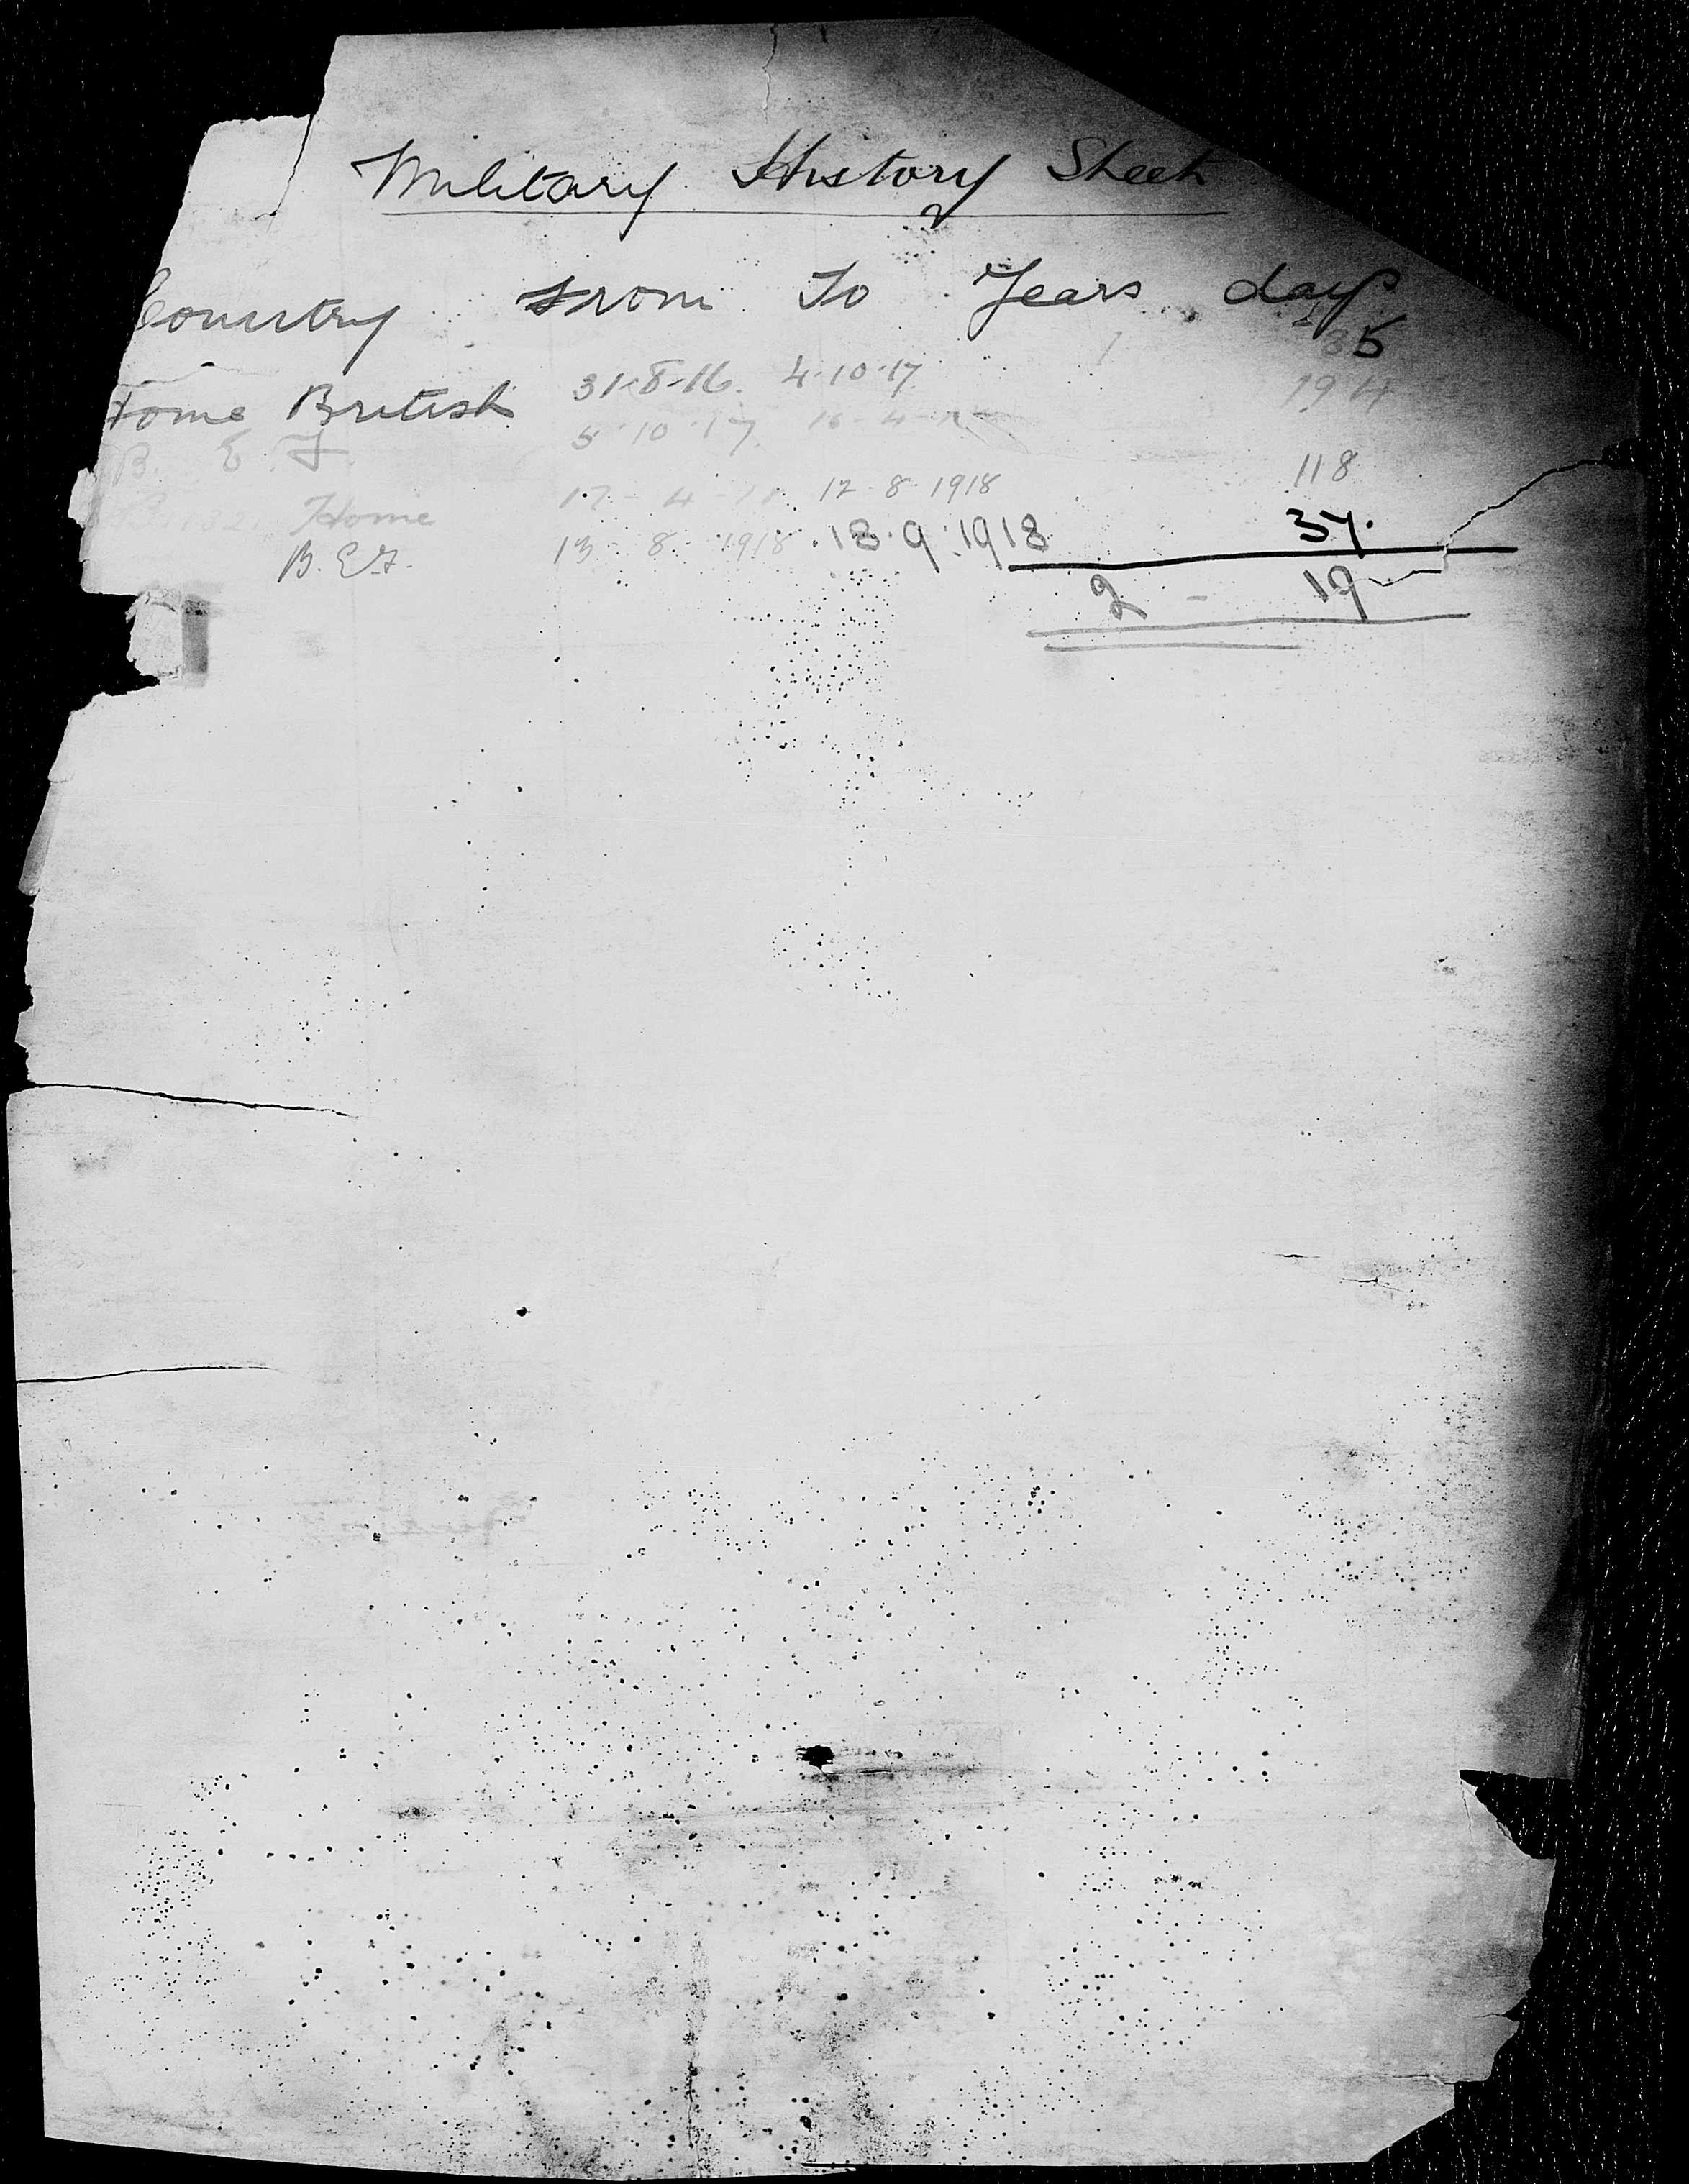 Military History Sheet
Country From To Years days
Home British 31-8-16. 4-10-17 1 35
B. E. F. 5-10-17 16-4- 194
Home 17-4- 12-8-1918 118
B.E.F. 13-8-1918 18.9.1918 37.
2 - 19